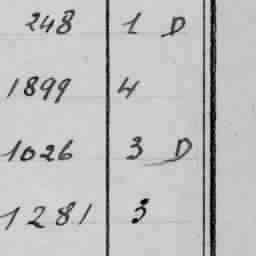 248 1 D
1899 4
1026 3 D
1281 3